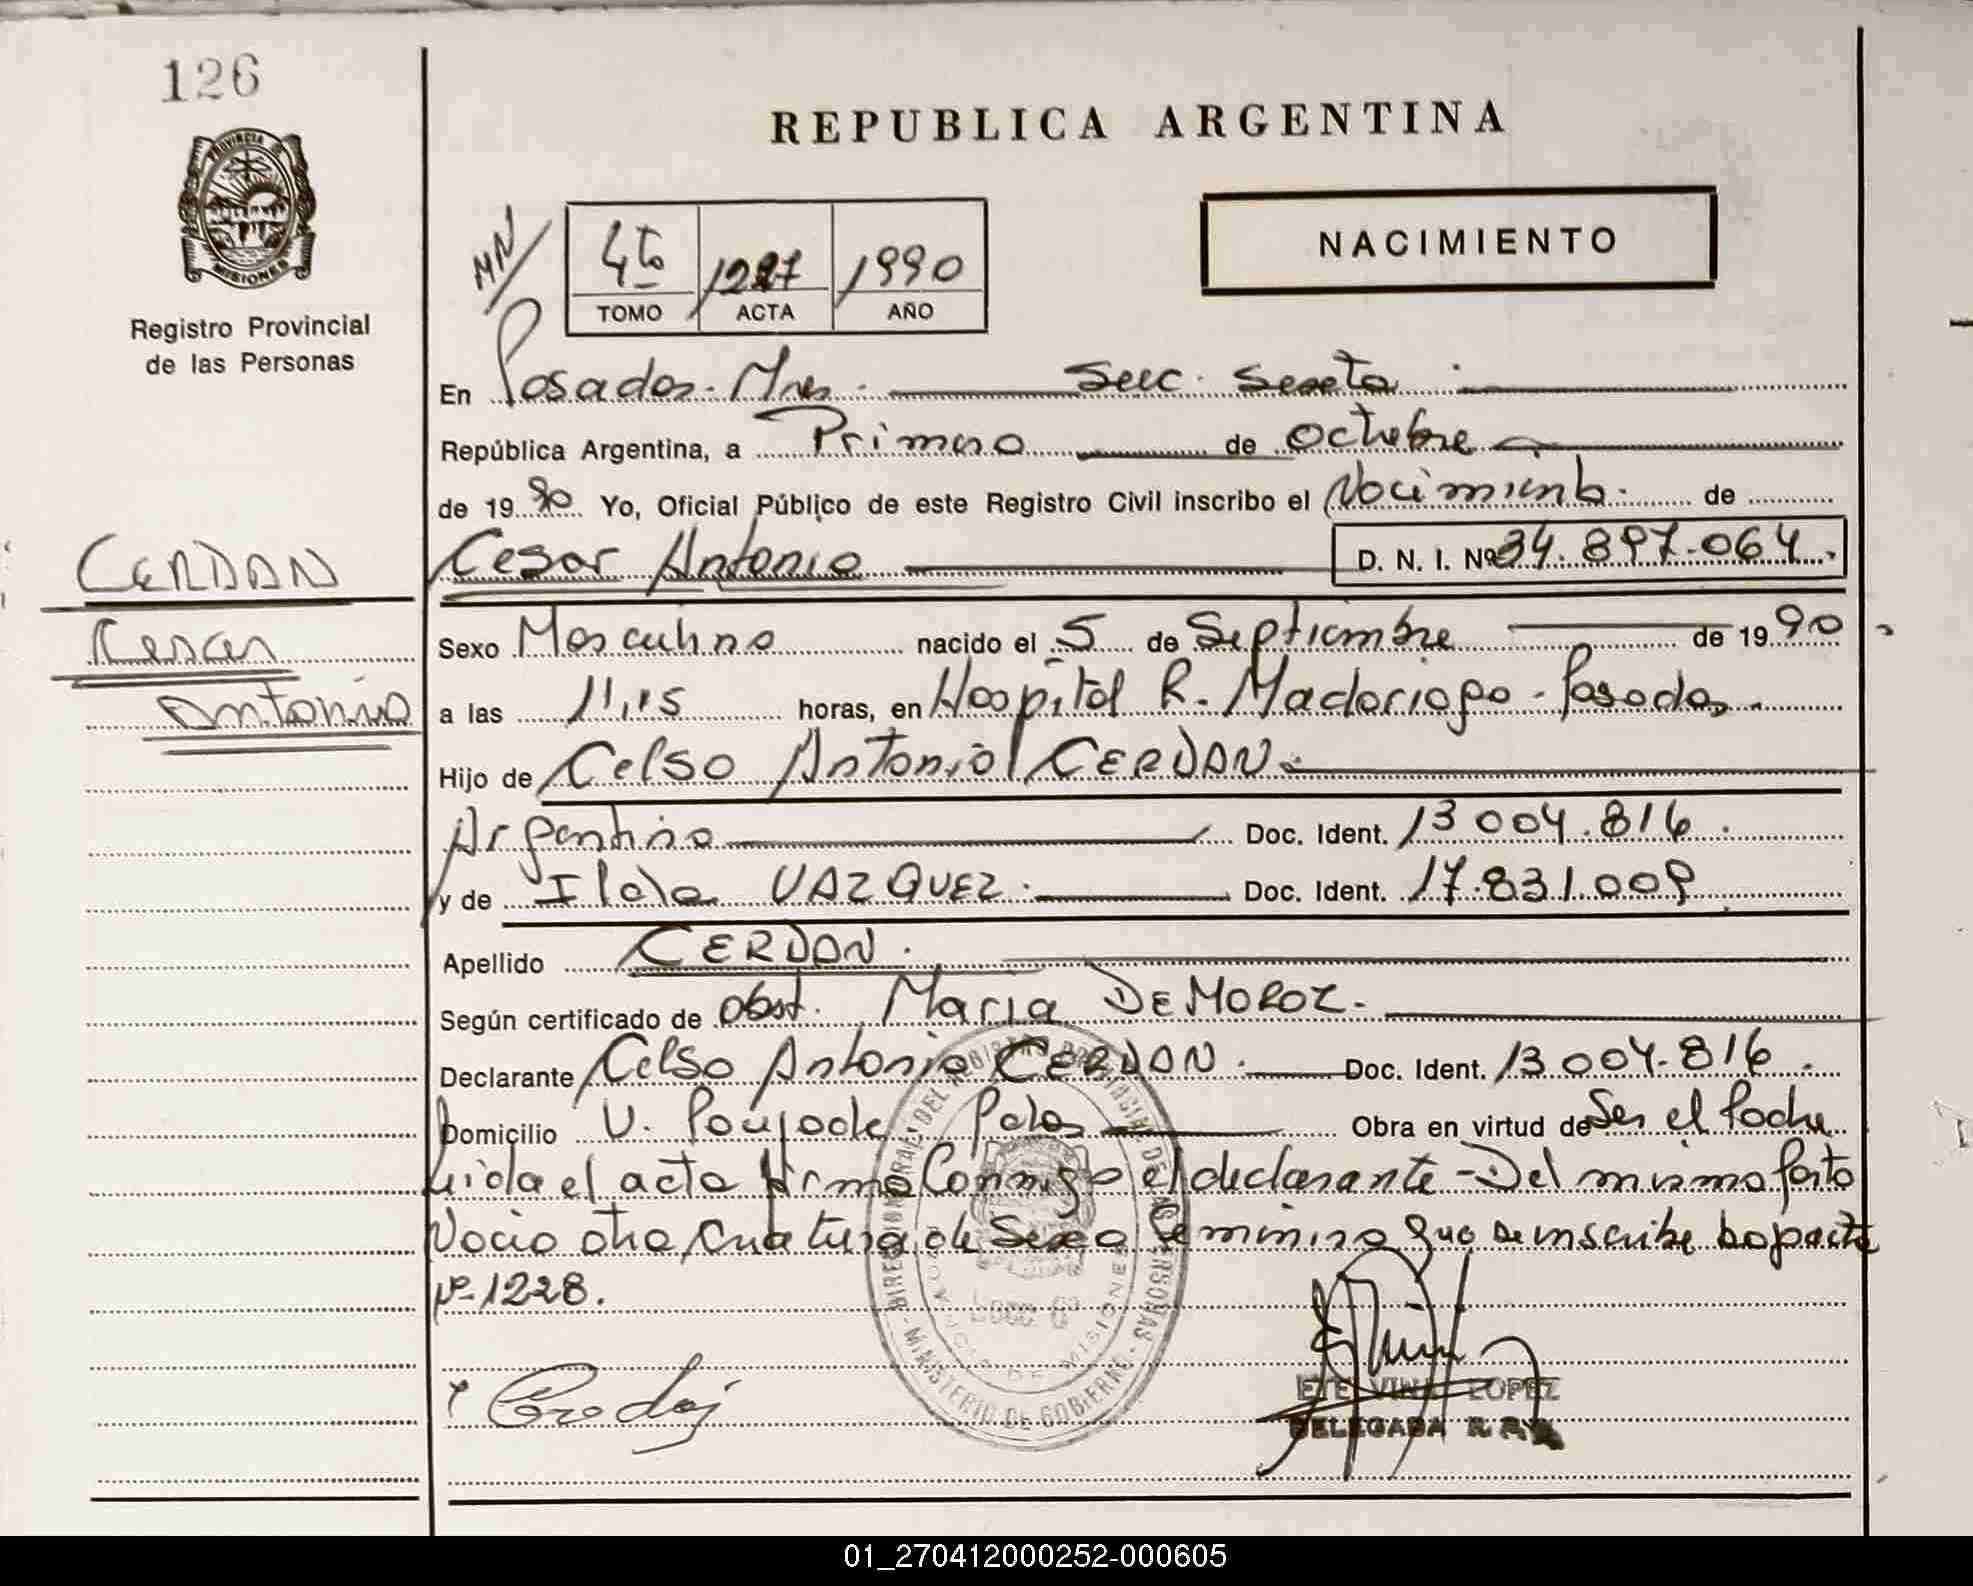 126
REPUBLICA ARGENTINA
PROVINCIA DE
MISIONES
Registro Provincial
de las Personas
NACIMIENTO
MN/
4to 1227 1990
TOMO ACTA AÑO
En Posadas - Mnes. Secc. Sexta
República Argentina, a Primero de octubre
de 1990 Yo, Oficial Público de este Registro Civil inscribo el Nacimiento de
Cesar Antonio D. N. I. Nº 34.897.064
CERDAN
Cesar
Antonio
Sexo Masculino nacido el 5 de Septiembre de 1990
a las 11,15 horas, en Hospital R. Madariaga - Posadas
Hijo de Celso Antonio CERDAN
Argentino Doc. Ident. 13 004.816
y de Ilda VAZQUEZ Doc. Ident. 17.831.009
Apellido CERDAN
Según certificado de obst. Maria DE MOROZ
Declarante Celso Antonio CERDAN Doc. Ident. 13 004.816
Domicilio V. Poujade Pdas Obra en virtud de Ser el Padre
Leida el acta firma Conmigo el declarante - Del mismo Parto
Nacio otra criatura de Sexo Femenino que se inscribe bajo acta
nº 1228.
DIRECCION GRAL. DEL REGISTRO PROVINCIAL DE LAS PERSONAS - MINISTERIO DE GOBIERNO -
PROVINCIA DE MISIONES
LOPEZ
DELEGADA
01_270412000252-000605